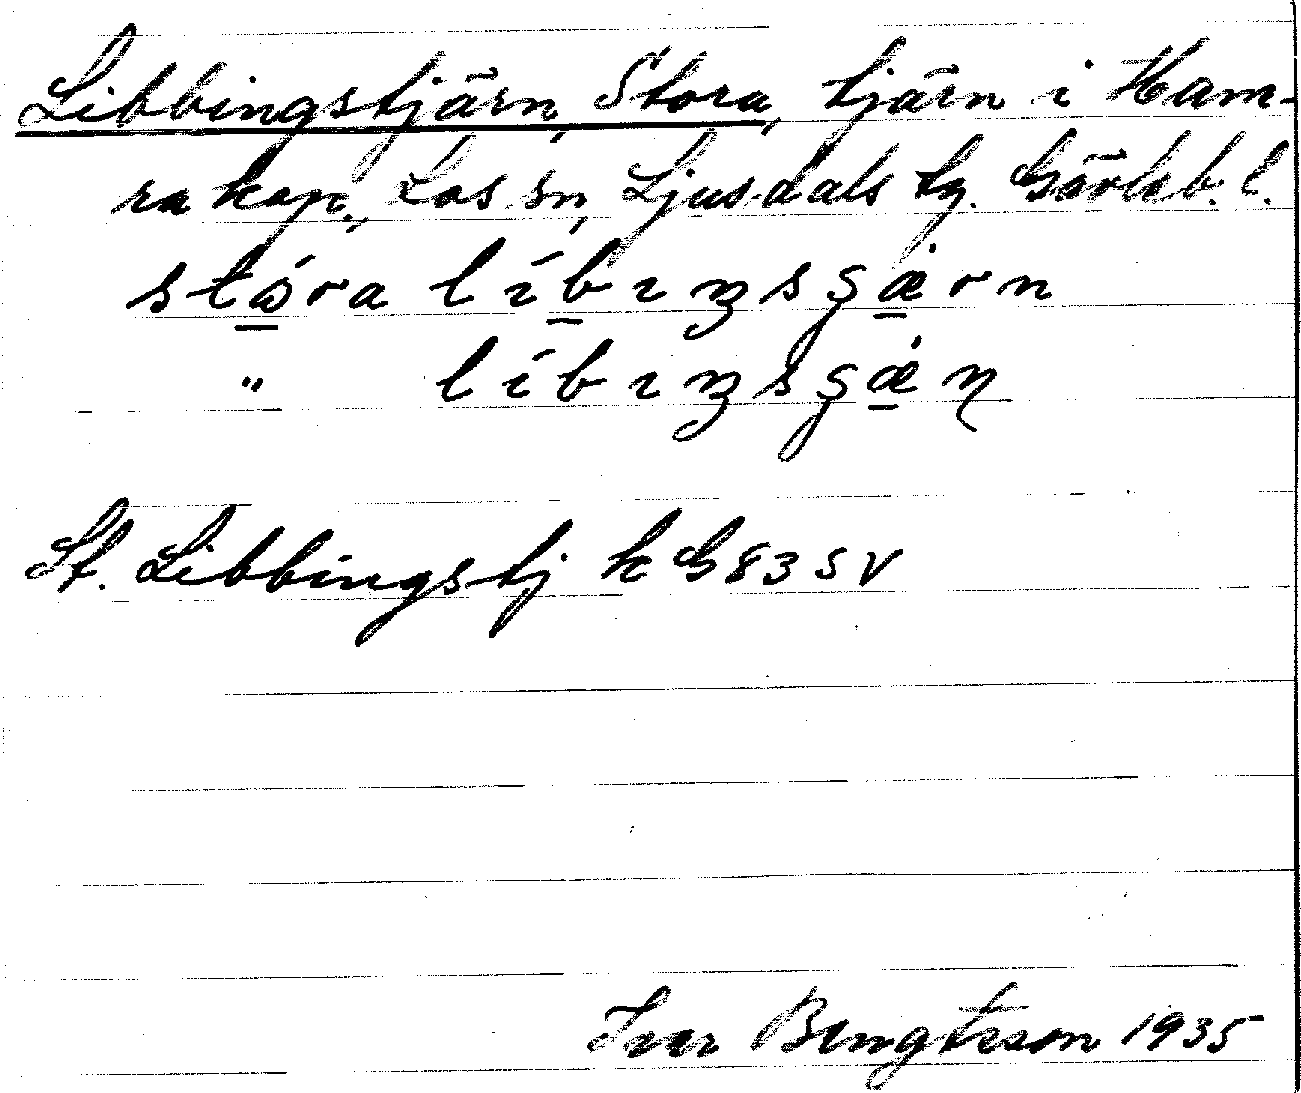 Libbingstjärn, Stora, tjärn i Ham-
ra kap., Los sn, Ljusdals tg. Gävleb. l.
stɷ́ra líbıŋsʂæ̀rn
" líbıŋsʂæ̀ɳ
St. Libbingstj k G 83 SV
Ivar Bengtsson 1935